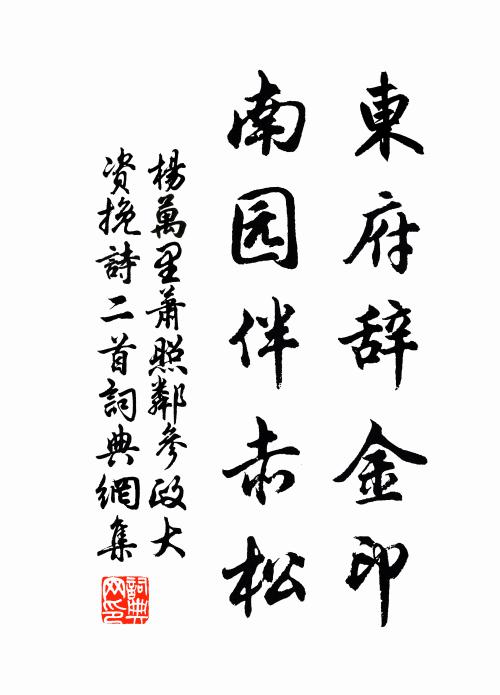 東府辞金印
南园伴赤松
楊萬里蕭照鄰參政大
资挽詩二首詞典網集
詞典網印